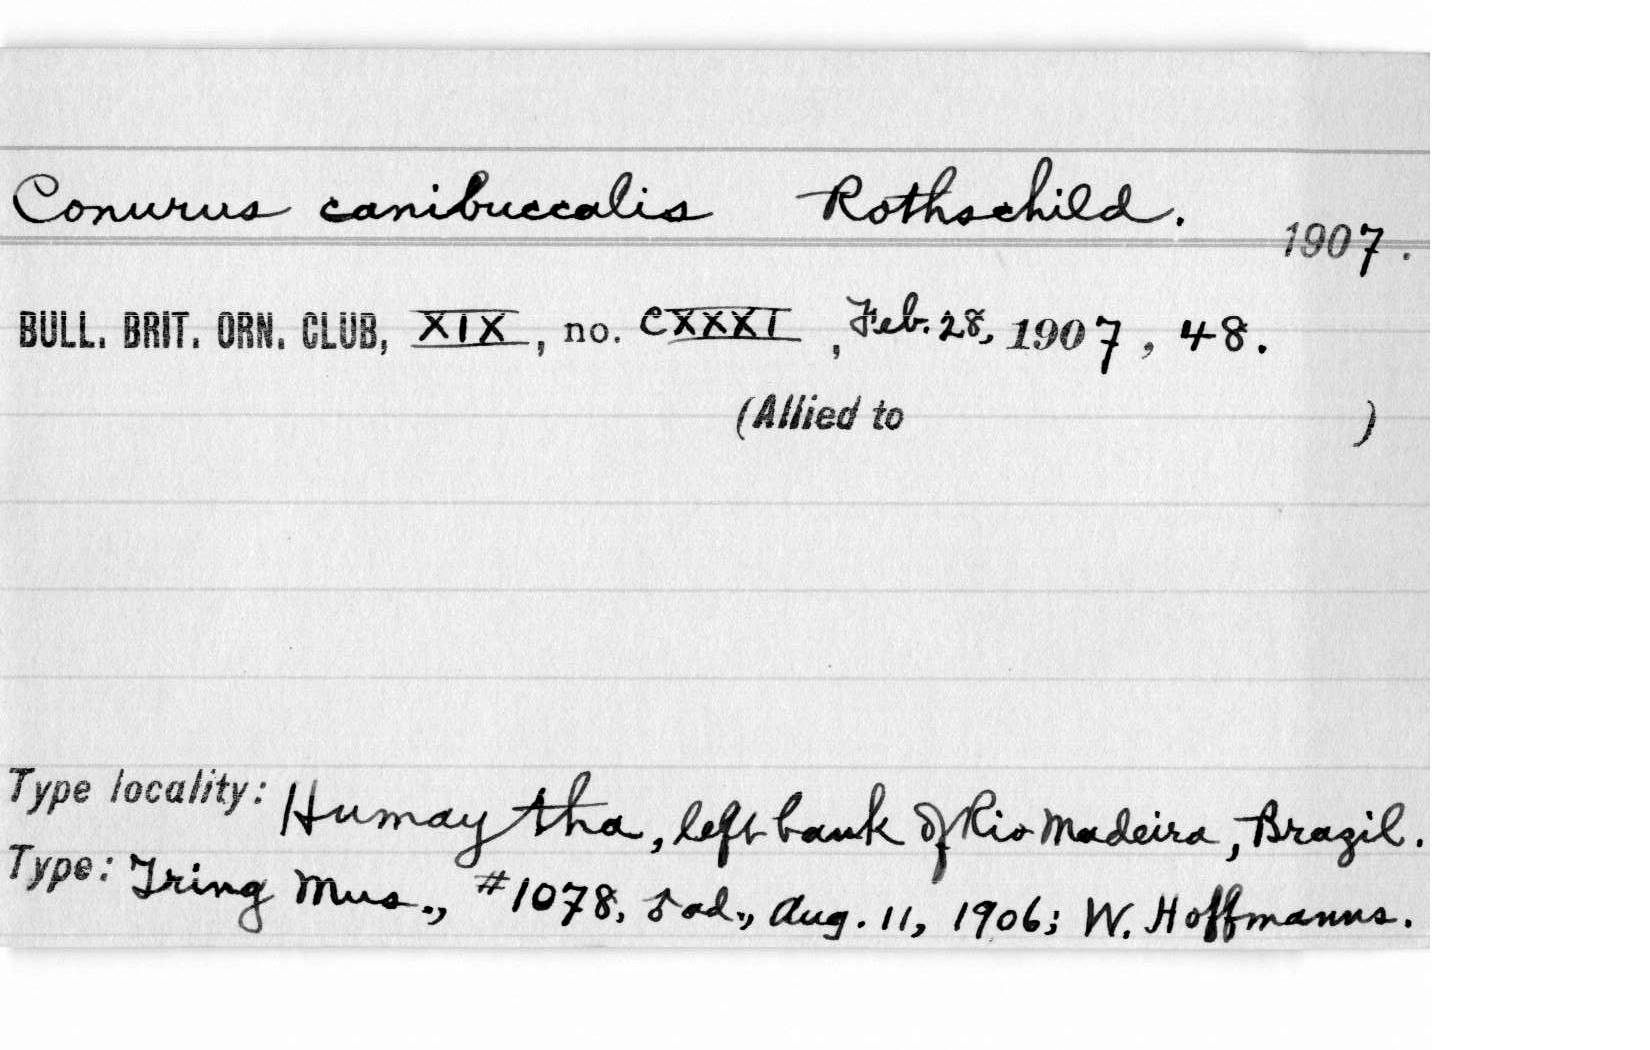 Conurus canibuccalis Rothschild.
1907.
BULL. BRIT. ORN. CLUB, XIX, no. CXXXI, Feb. 28, 1907, 48.
(Allied to )
Type locality: Humaytha, left bank of Rio Madeira, Brazil.
Type: Tring Mus., #1078, ♂ ad., Aug. 11, 1906; W. Hoffmanns.